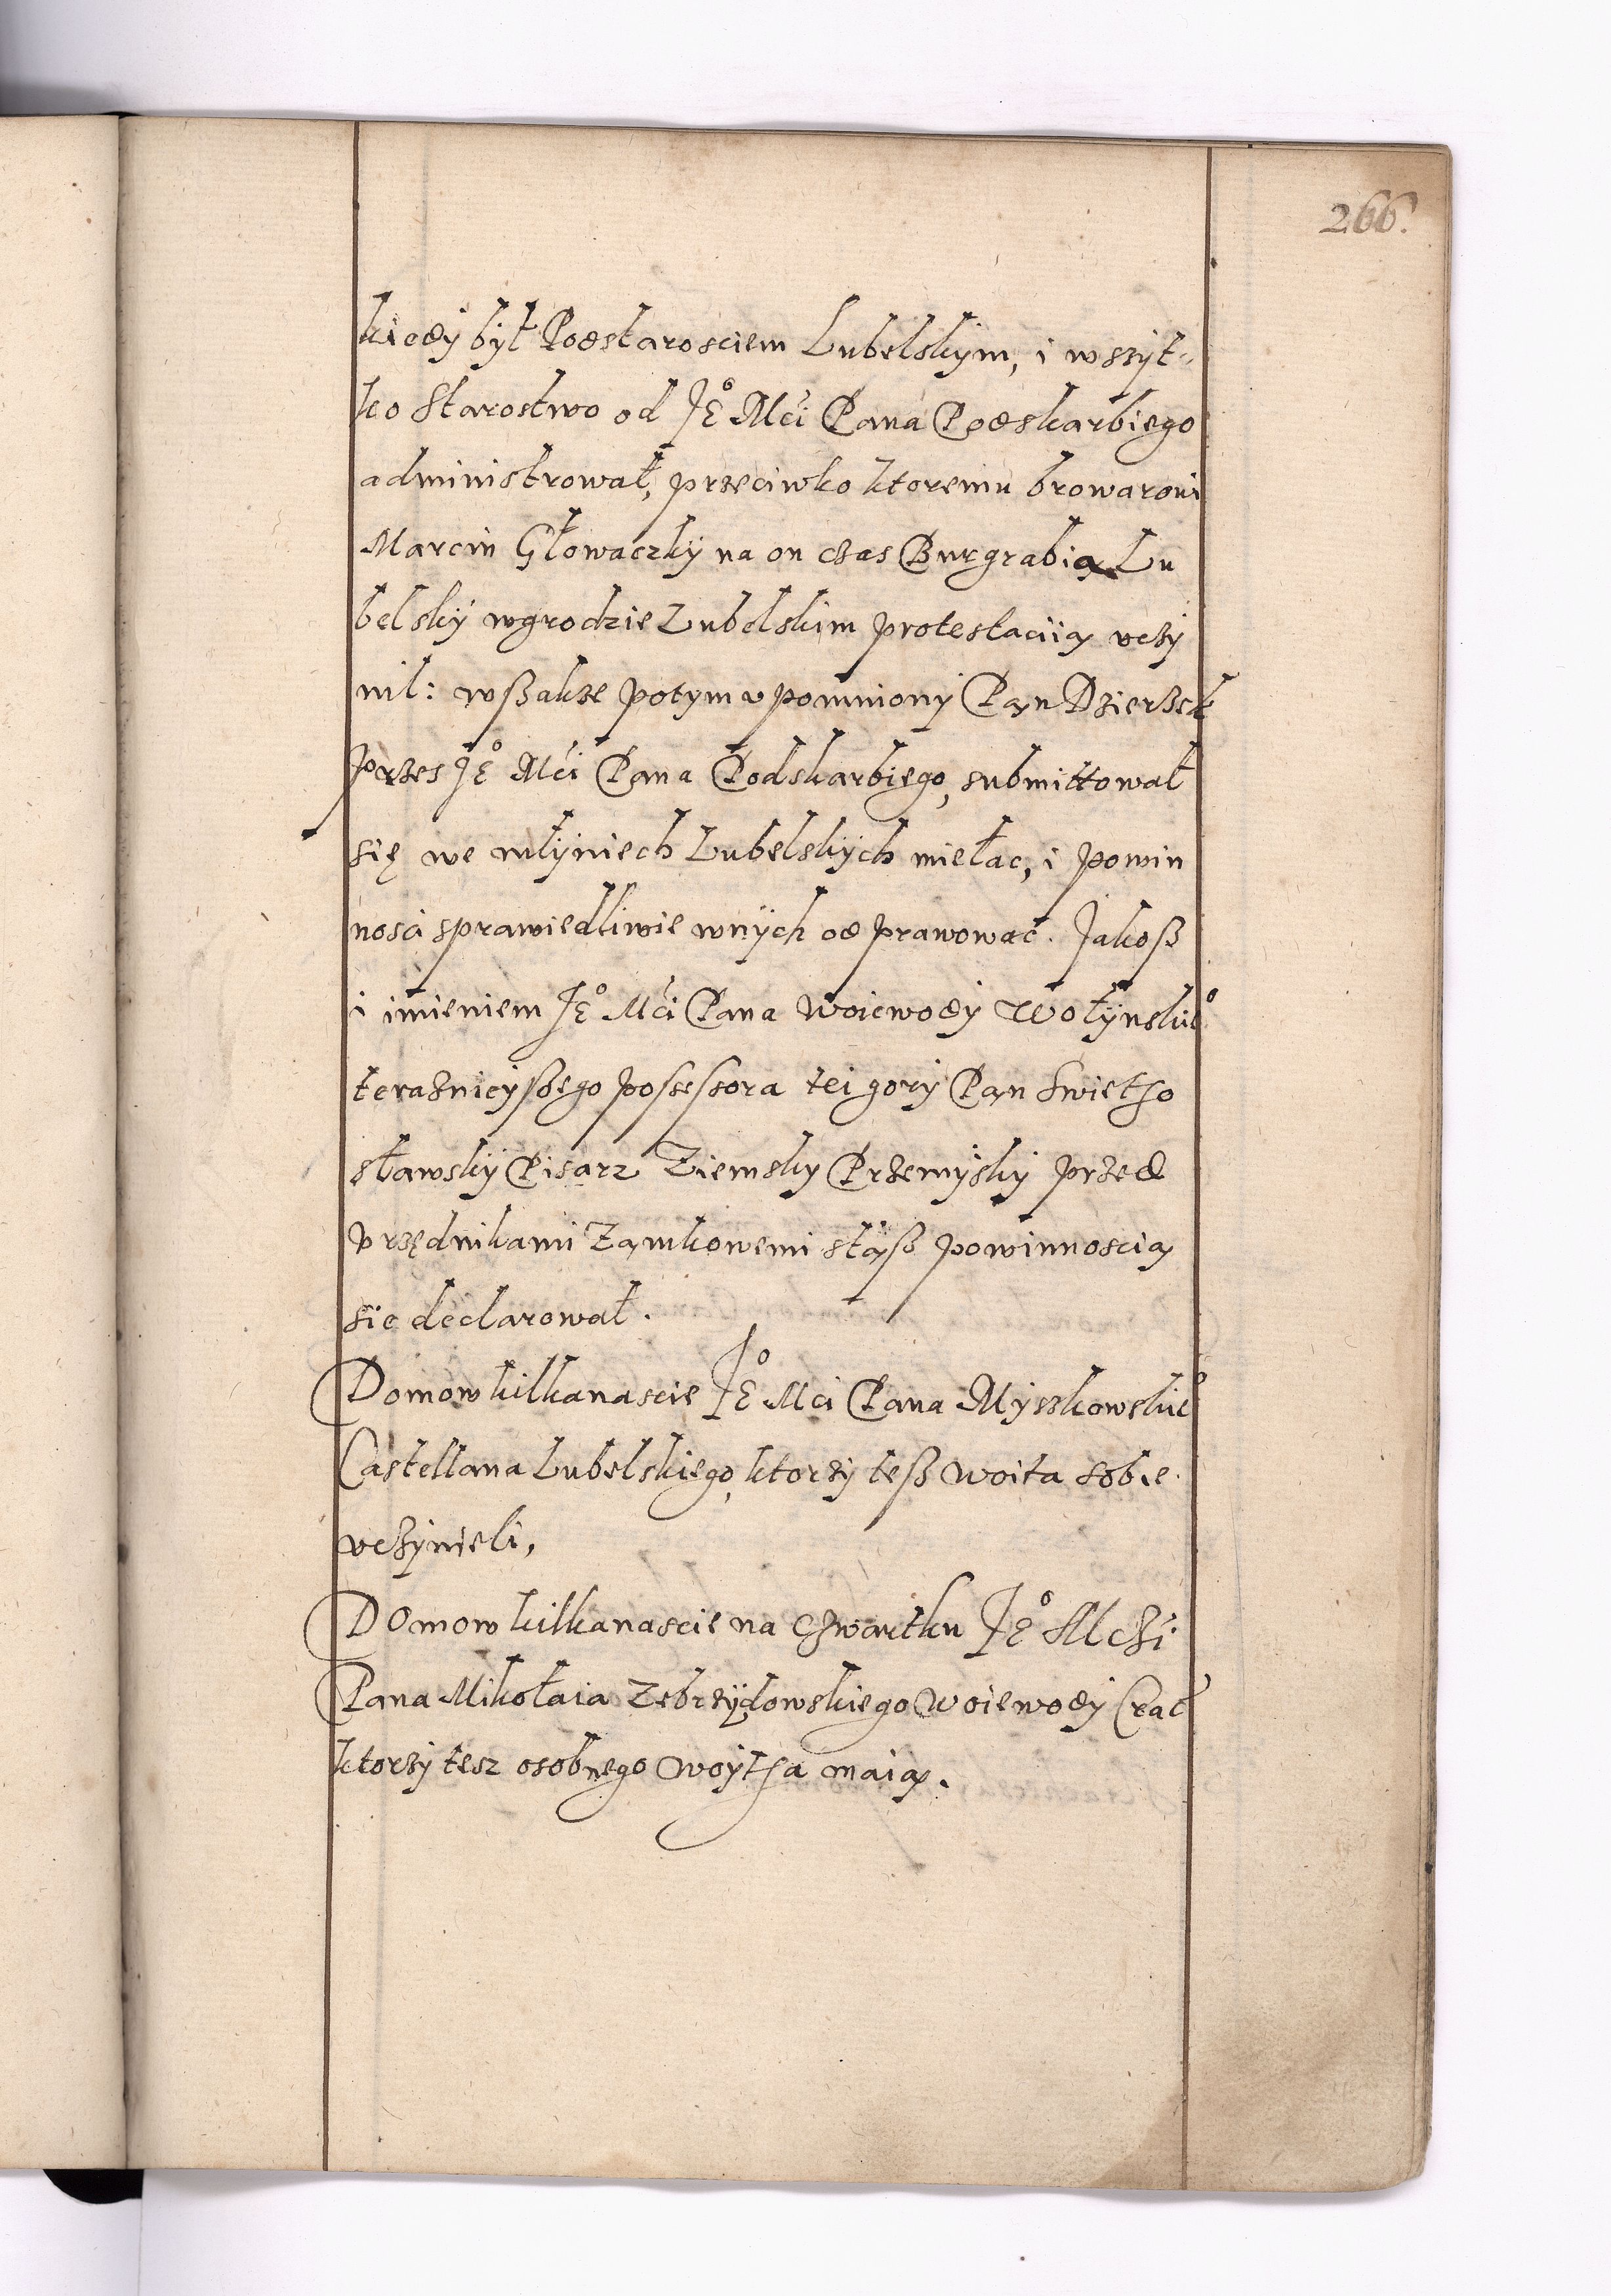 266.
kiedÿ bÿł Podstarosciem Lubelskÿm, i wszÿt=
ko Starostwo od Je° Mći Pana Podskarbiego
administrował, przeciwko ktoremu browarowi
Marcin Głowaczkÿ na on czas Burgrabią Lu
belskÿ wgrodzie Lubelskim protestaciią vczÿ
nil: wßakze potym vpomnionÿ Pąn Dzierzek
przes Je° Mći Pana Podskarbiego, submittował
się we młÿniech Lubelskÿch miełac, i powin
nosci sprawiedliwie wnÿch odprawowac. Jakoß
i imieniem Je° Mći Pana Woiewodÿ Wołÿnskie°
teraznieÿßego possessora tei gorÿ Pąn Swieto
sławskÿ Pisarz Ziemsky Przemÿskÿ przed
vrzędnikami Ząmkowemi stąß powinnoscią
sie declarował.
Domow kilkanascie Je° Mci Pana Mÿszkowskie°
Castellana Lubelskiego, ktorzÿ teß woita sobie
vczÿnieli,
Domow kilkanascie na Czwartku Je° Mczi
Pana Mikołaia Zebrzÿdowskiego Woiewodÿ Crac
ktorzÿ tesz osobnego woÿta maią.